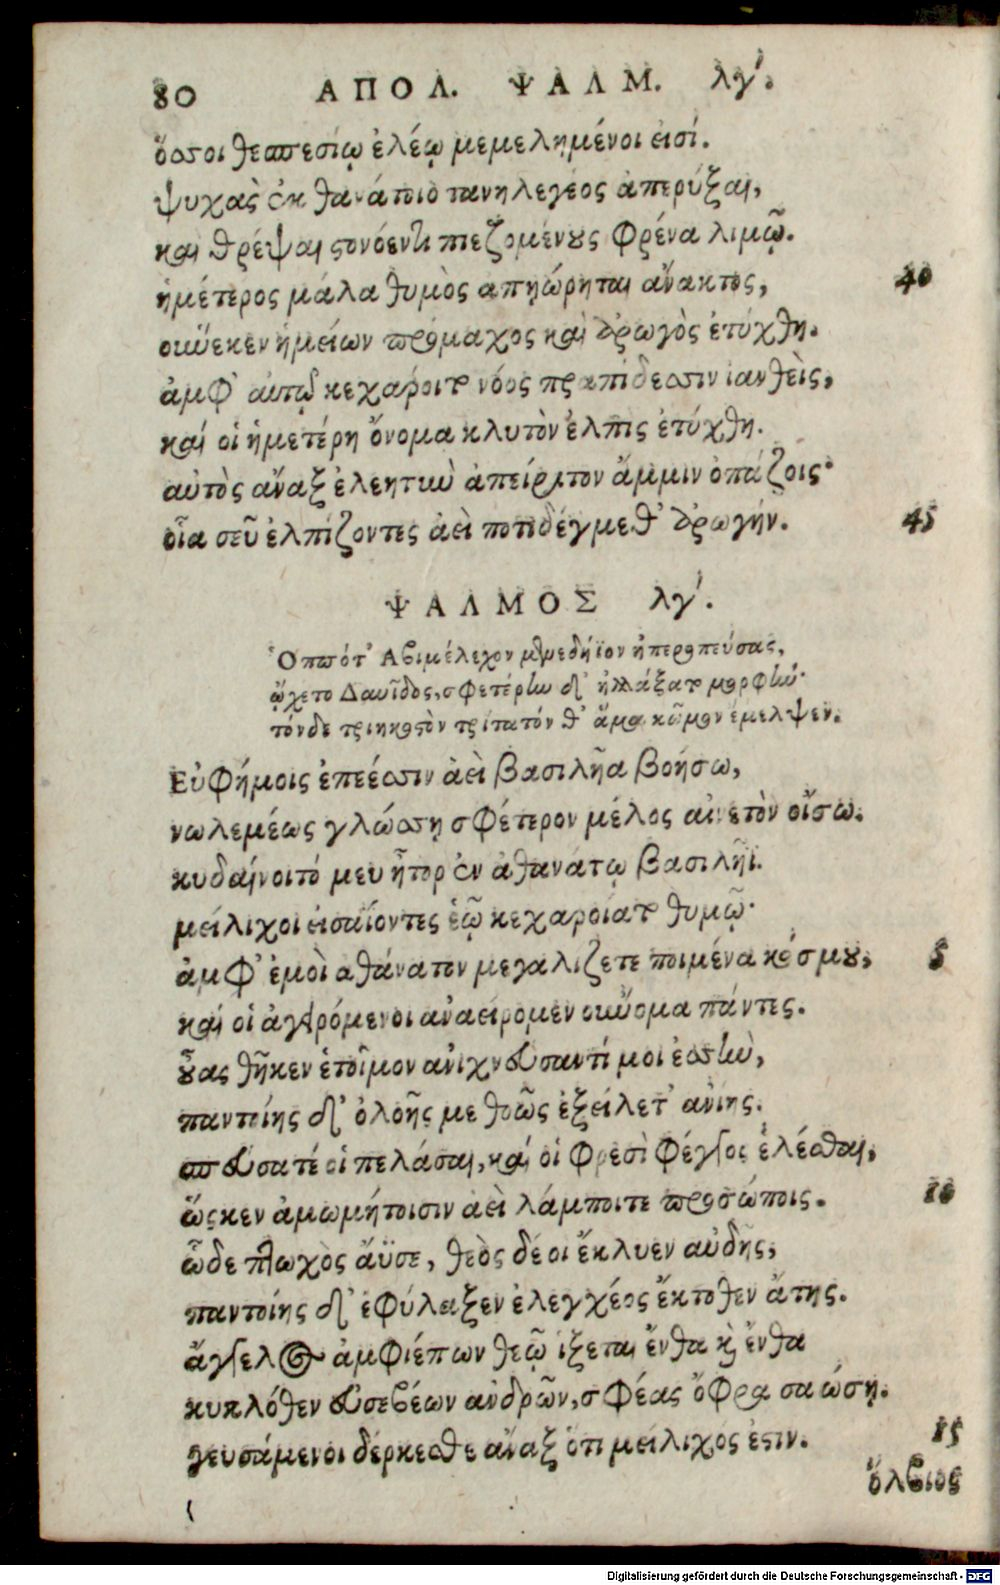 80 ΑΠΟΛ. ΨΑΛΜ. λγ'.
ὅσσοι θεσπεσίῳ ἐλέῳ μεμελημένοι εἰσί.
ψυχὰς ἐκ θανάτοιο τανηλεγέος ἀπερύξαι,
καὶ θρέψαι στονόεντι πιεζομένους φρένα λιμῷ.
ἡμέτερος μάλα θυμὸς ἀπηώρηται ἄνακτος, 40
οὕνεκεν ἡμείων πρόμαχος καὶ ἀρωγὸς ἐτύχθη.
ἀμφ' αὐτῷ κεχάροιτο νόος πραπίδεσσιν ἰανθεὶς,
καί οἱ ἡμετέρη ὄνομα κλυτὸν ἐλπὶς ἐτύχθη.
αὐτὸς ἄναξ ἐλεητὺν ἀπείριτον ἄμμιν ὀπάζοις·
οἷα σεῦ ἐλπίζοντες ἀεὶ ποτιδέγμεθ' ἀρωγήν. 45
ΨΑΛΜΟΣ λγ'.
Ὁππότ' Ἀβιμέλεχον μενεδήϊον ἠπεροπεύσας,
ᾤχετο Δαυῖδος, σφετέρην δ' ἠλλάξατο μορφήν·
τόνδε τριηκοστὸν τρίτατόν θ' ἅμα κῶμον ἔμελψεν.
Εὐφήμοις ἐπέεσσιν ἀεὶ βασιλῆα βοήσω,
νωλεμέως γλώσσῃ σφέτερον μέλος αἰνετὸν οἴσω.
κυδαίνοιτό μευ ἦτορ ἐν ἀθανάτῳ βασιλῆϊ.
μείλιχοι εἰσαΐοντες ἑῷ κεχαροίατο θυμῷ·
ἀμφ' ἐμοὶ ἀθάνατον μεγαλίζετε ποιμένα κόσμου, 5
καί οἱ ἀγειρόμενοι ἀναείρομεν οὔνομα πάντες.
οὖας θῆκεν ἑτοῖμον ἀνιχνεύσαντί μοι ἐσθλὺ,
παντοίης δ' ὀλοῆς με θοῶς ἐξείλετ' ἀνίης.
σπεύσατέ οἱ πελάσαι, καί οἱ φρεσὶ φέγγος ἑλέσθαι,
ὥς κεν ἀμωμήτοισιν ἀεὶ λάμποιτε προσώποις. 10
ὧδε πτωχὸς ἄϋσε, θεὸς δέ οἱ ἔκλυεν αὐδῆς,
παντοίης δ' ἐφύλαξεν ἐλεγχέος ἔκτοθεν ἄτης.
ἄγγελος ἀμφιέπων θεῷ ἵξεται ἔνθα καὶ ἔνθα
κυκλόθεν εὐσεβέων ἀνδρῶν, σφέας ὄφρα σαώσῃ.
γευσάμενοι δέρκεσθε ἄναξ ὅτι μείλιχός ἐστιν. 15
ὄλβιος
Digitalisierung gefördert durch die Deutsche Forschungsgemeinschaft - DFG